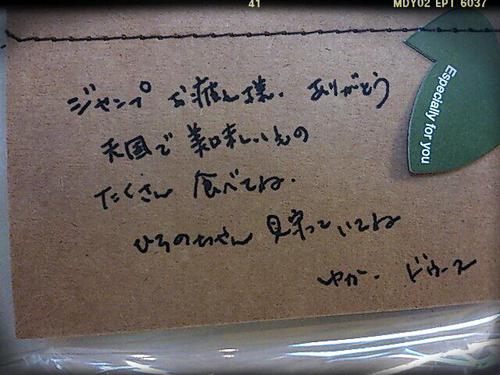 41 MDY02 EPT 6037
Especially for you
ジャンプ お疲れ様. ありがとう
天国で 美味しいもの
たくさん 食べてね.
ひろのちゃん 見守っていてね
やか. ドゥース